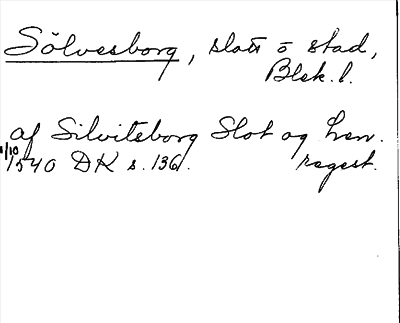 Sölvesborg, slott o stad,
Blek. l.
af Silviteborg Slot og Len.
1/10 1540 DK s. 136. regest.